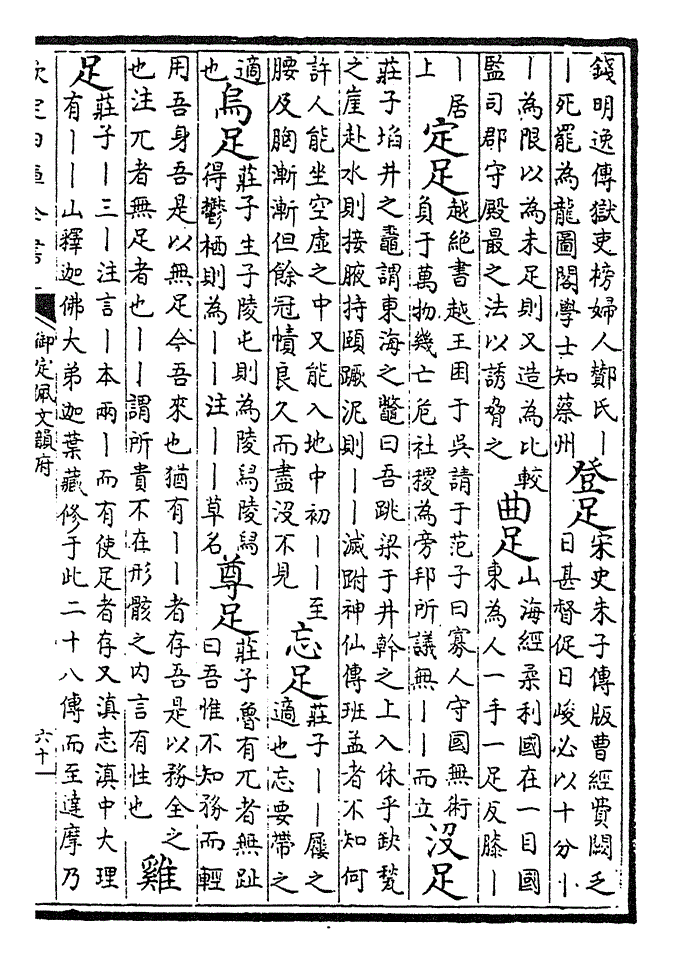 錢明逸傳獄吏榜婦人酇氏丨
丨死罷為龍圖閣學士知蔡州
登足
宋史朱子傳版曹經費闕乏
日甚督促日峻必以十分丨
丨為限以為未足則又造為比較
監司郡守殿最之法以誘脅之
曲足
山海經柔利國在一目國
東為人一手一足反膝丨
丨居
上
定足
越絶書越王困于吳請于范子曰寡人守國無術
負于萬物幾亡危社稷為旁邦所議無丨丨而立
沒足
莊子埳井之鼃謂東海之鼈曰吾跳梁于井幹之上入休乎缺甃
之崖赴水則接腋持頤蹶泥則丨丨滅跗神仙傳班孟者不知何
許人能坐空虛之中又能入地中初丨丨至
腰及胸漸漸但餘冠幘良久而盡沒不見
忘足
莊子丨丨屨之
適也忘要帶之
適
也
烏足
莊子生子陵屯則為陵舄陵舄
得鬱栖則為丨丨注丨丨草名
尊足
莊子魯有兀者無趾
曰吾惟不知務而輕
用吾身吾是以無足今吾來也猶有丨丨者存吾是以務全之
也注兀者無足者也丨丨謂所貴不在形骸之内言有性也
雞
足
莊子丨三丨注言丨本兩丨而有使足者存又滇志滇中大理
有丨丨山釋迦佛大弟迦葉藏修于此二十八傳而至達摩乃
欽定四庫全書
御定佩文韻府
六十一